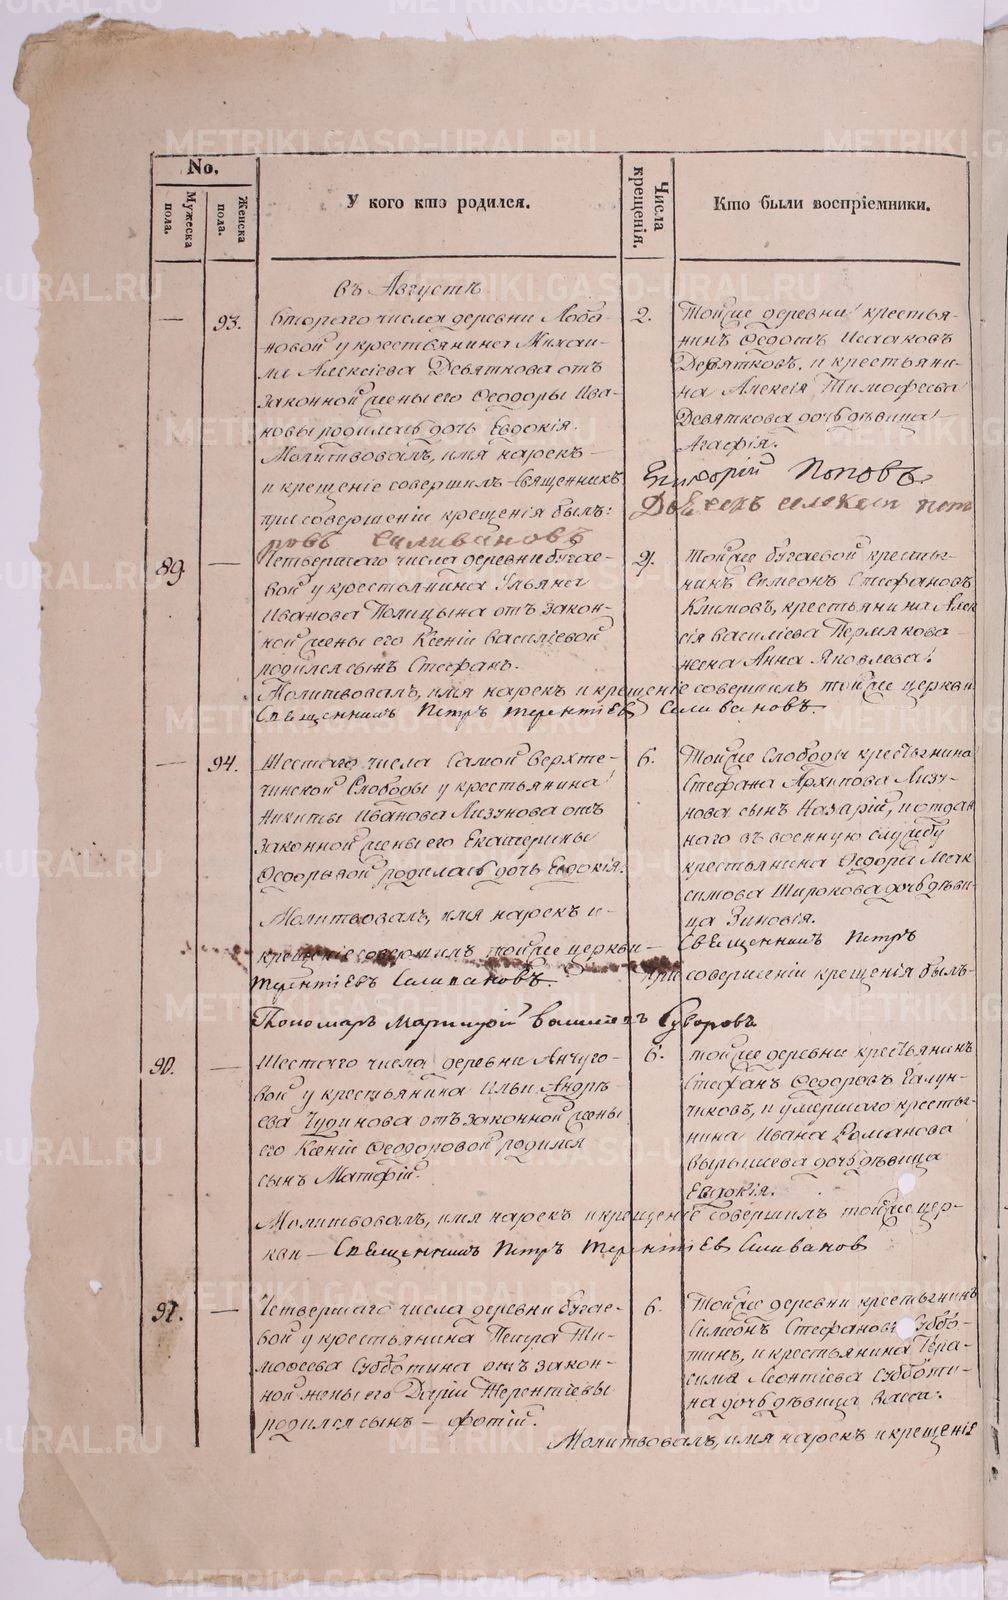 No.
Мужеска пола.
Женска пола.
У кого кто родился.
Числа крещенія.
Кто были воспріемники.
въ Августѣ
— 93.
Втораго числа деревни Лоба-
новой у крестьянина Михаи-
ла Алексіева Девяткова отъ
законной жены его Ѳеодоры Ива-
новы родилась дочь Евдокія.
Молитвовалъ, имя нарекъ —
и крещеніе совершилъ Священникъ
при совершеніи крещенія былъ:
2.
Тойже деревни крестья-
нинъ Ѳедотъ Исааковъ
Девятковъ, и крестьяни-
на Алексія Тимофеева
Девяткова дочь дѣвица
Агафія.
Григорій Поповъ
Дьячекъ
Селивановъ
89. —
Четвертаго числа деревни Бугае-
вой у крестьянина Ульяна
Иванова Полицына отъ закон-
ной жены его Ксеніи Василіевой
родился сынъ Стефанъ.
4.
Тойже Бугаевой крестья-
нинъ Симеонъ Стефановъ
Климовъ, крестьянина Алек
сія Василіева Пермякова
жена Анна Яковлева.
Молитвовалъ, имя нарекъ и крещеніе совершилъ тойже церкви
Священникъ Петръ Терентіевъ Селивановъ.
— 94.
Шестаго числа самой Верхте-
чинской Слободы у крестьянина
Никиты Иванова Лизунова отъ
законной жены его Екатерины
Ѳедоровой родилась дочь Евдокія.
Молитвовалъ, имя нарекъ и
крещеніе совершилъ тойже церкви —
Терентіевъ Селивановъ.
6.
Тойже Слободы крестьянина
Стефана Архипова Лизу-
нова сынъ Назарій, и отдан
наго въ военную службу
крестьянина Ѳедора Мак
симова Широкова дочь дѣви-
ца Зиновія.
Священникъ Петръ
При совершеніи крещенія былъ
Пономарь Суворовъ
90. —
Шестаго числа деревни Анчуго-
вой у крестьянина Ильи Андрѣ-
ева Чудинова отъ законной жены
его Ксеніи Ѳеодоровой родился
сынъ Матфій.
6.
тойже деревни крестьянинъ
Стефанъ Ѳедоровъ Галун-
чиковъ, и умершаго крестья-
нина Ивана Романова
Вырышева дочь дѣвица
Евдокія.
Молитвовалъ, имя нарекъ и крещеніе совершилъ тойже цер-
кви — Священникъ Петръ Терентіевъ Селивановъ
91. —
Четвертаго числа деревни Бугае-
вой у крестьянина Петра Ти-
мофеева Субботина отъ закон-
ной жены его Даріи Терентіевы
родился сынъ — Фотій.
6.
Тойже деревни крестьянинъ
Симеонъ Стефановъ Суббо-
тинъ, и крестьянина Гера-
сима Леонтіева Субботи-
на дочь дѣвица Васса.
Молитвовалъ, имя нарекъ и крещеніе
METRIKI.GASO-URAL.RU